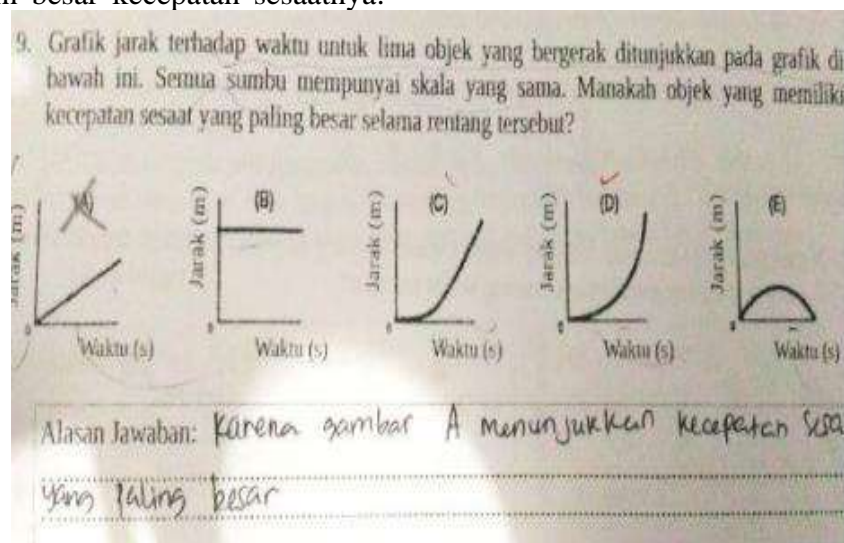 besar kecepatan sesaatnya.
9. Grafik jarak terhadap waktu untuk lima objek yang bergerak ditunjukkan pada grafik di
bawah ini. Semua sumbu mempunyai skala yang sama. Manakah objek yang memiliki
kecepatan sesaat yang paling besar selama rentang tersebut?
(A) (B) (C) (D) (E)
Jarak (m) Jarak (m) Jarak (m) Jarak (m) Jarak (m)
0 0 0 0 0
Waktu (s) Waktu (s) Waktu (s) Waktu (s) Waktu (s)
Alasan Jawaban: Karena gambar A menunjukkan kecepatan sesa
yang paling besar